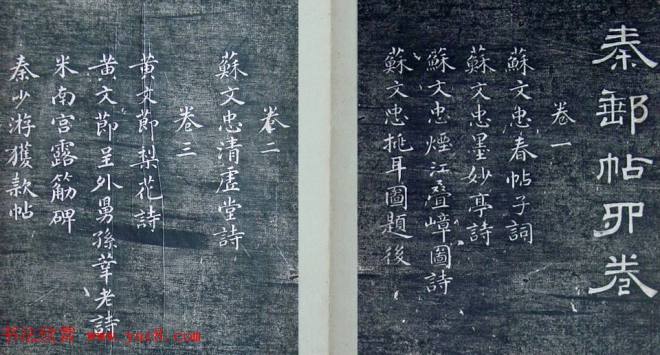 秦郵帖四卷
卷一
蘇文忠春帖子詞
蘇文忠墨妙亭詩
蘇文忠煙江疊嶂圖詩
蘇文忠挑耳圖題後
卷二
蘇文忠清虛堂詩
卷三
黃文節梨花詩
黃文節呈外舅孫莘老詩
米南宫露筋碑
秦少游獲款帖
书法欣赏 www.yac8.com